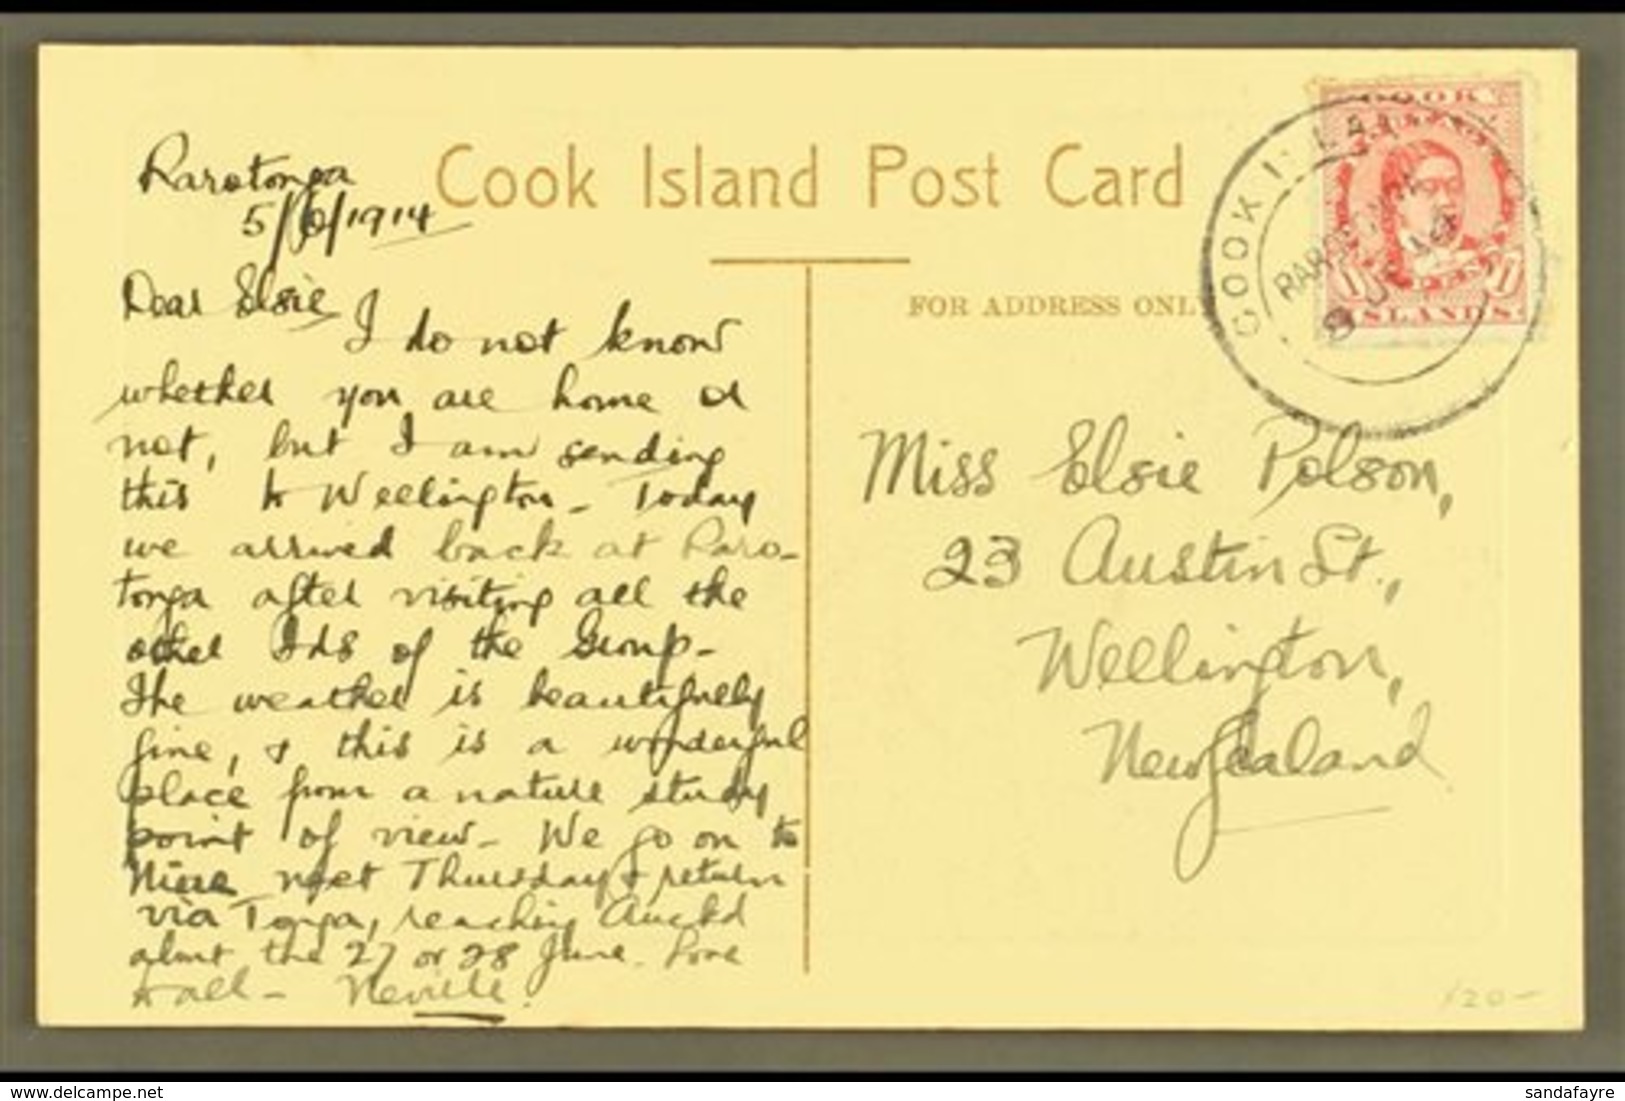 Cook Island Post Card
Rarotonga
5/6/1914
Dear Elsie
I do not know
whether you are home or
not, but I am sending
this to Wellington - Today
we arrived back at Raro-
tonga after visiting all the
other Ids of the Group -
The weather is beautifully
fine, & this is a wonderful
place from a nature study
point of view - We go on to
Niue next Thursday & return
via Tonga, reaching Auckd
about the 27 or 28 June. Love
to all - Neville.
FOR ADDRESS ONLY
COOK ISLANDS
RAROTONGA
COOK
ISLANDS
Miss Elsie Polson,
23 Austin St.,
Wellington,
New Zealand
120-
©sandafayre 2017
sandafayre.com